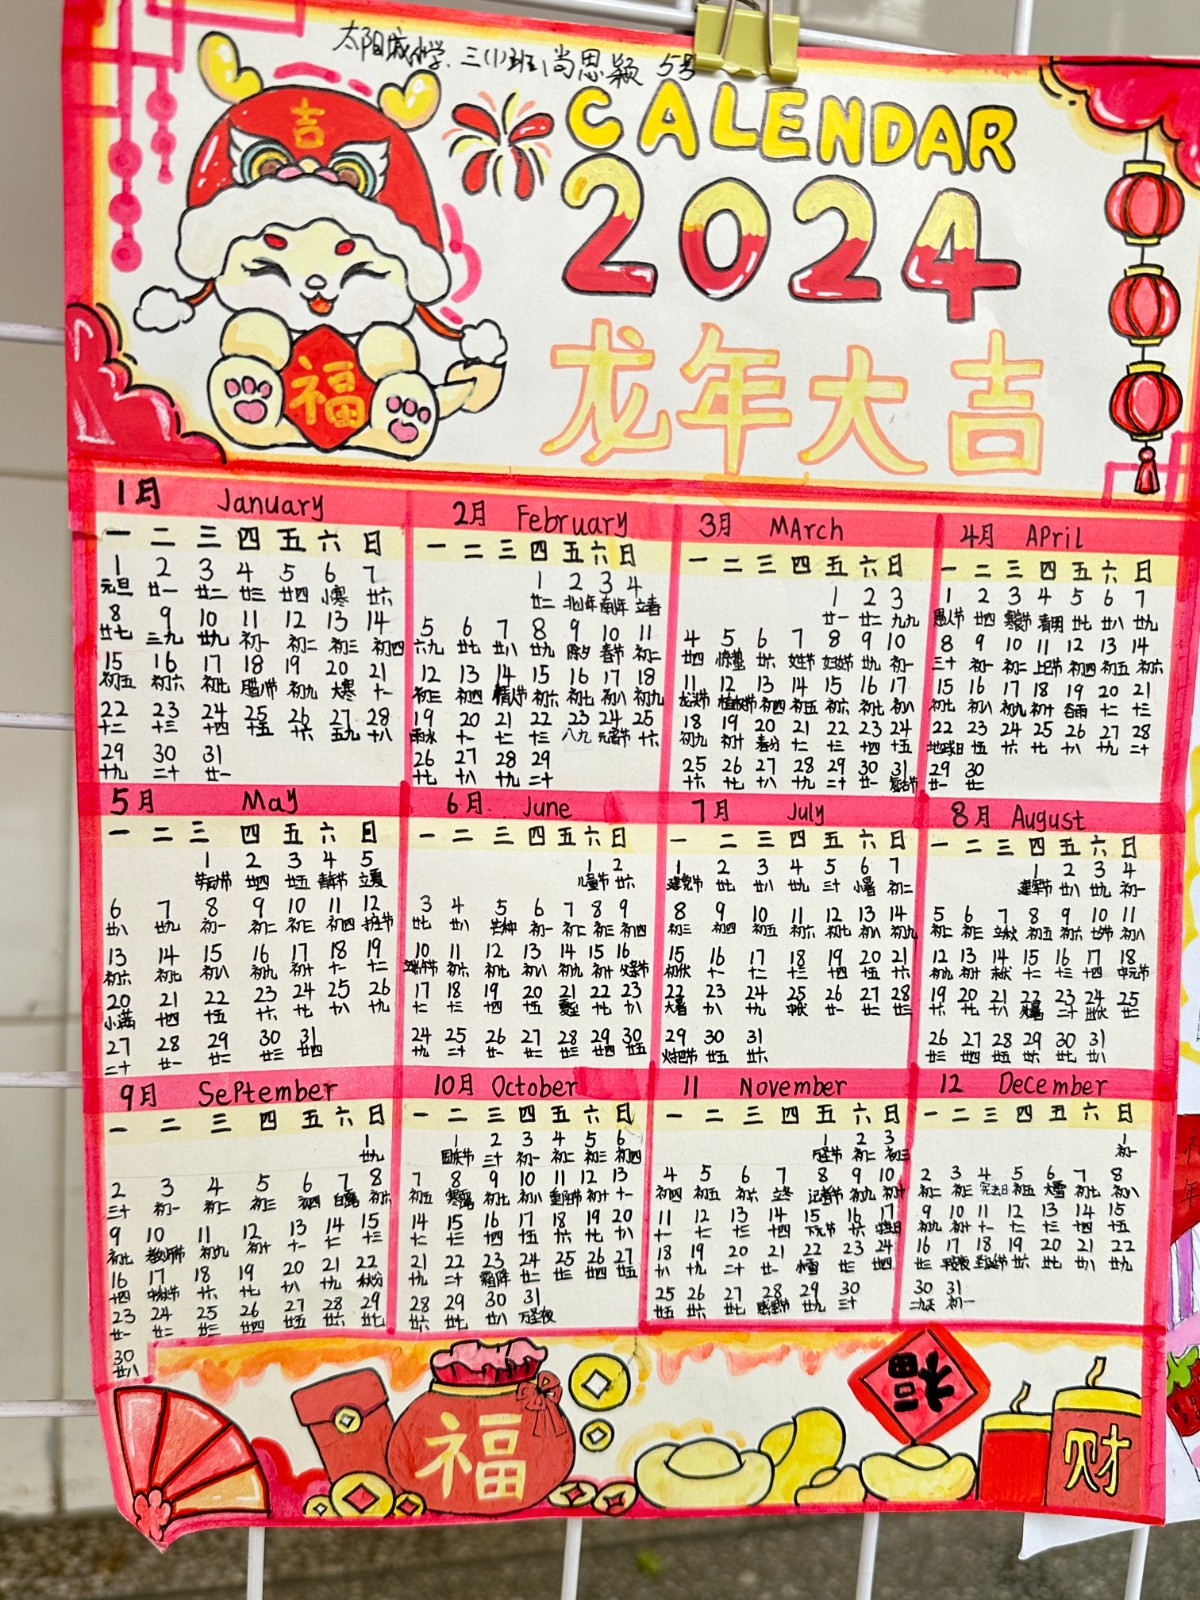 太阳城小学、三(1)班、尚思颖 5号
CALENDAR
2024
龙年大吉
吉
福
1月 January
一 二 三 四 五 六 日
1 2 3 4 5 6 7
元旦 廿一 廿二 廿三 廿四 小寒 廿六
8 9 10 11 12 13 14
廿七 三九 廿九 初一 初二 初三 初四
15 16 17 18 19 20 21
初五 初六 初七 腊八节 初九 大寒 十一
22 23 24 25 26 27 28
十二 十三 十四 十五 十六 五九 十八
29 30 31
十九 二十 廿一
2月 February
一 二 三 四 五 六 日
1 2 3 4
廿二 北小年 南小年 立春
5 6 7 8 9 10 11
六九 廿七 廿八 廿九 除夕 春节 初二
12 13 14 15 16 17 18
初三 初四 情人节 初六 初七 初八 初九
19 20 21 22 23 24 25
雨水 十一 十二 十三 八九 元宵节 十六
26 27 28 29
十七 十八 十九 二十
3月 MArch
一 二 三 四 五 六 日
1 2 3
廿一 廿二 九九
4 5 6 7 8 9 10
廿四 惊蛰 廿六 女生节 妇女节 廿九 初一
11 12 13 14 15 16 17
龙头节 植树节 初四 初五 初六 初七 初八
18 19 20 21 22 23 24
初九 初十 春分 十二 十三 十四 十五
25 26 27 28 29 30 31
十六 十七 十八 十九 二十 廿一 复活节
4月 APril
一 二 三 四 五 六 日
1 2 3 4 5 6 7
愚人节 廿四 寒食节 清明 廿七 廿八 廿九
8 9 10 11 12 13 14
三十 初一 初二 上巳节 初四 初五 初六
15 16 17 18 19 20 21
初七 初八 初九 初十 谷雨 十二 十三
22 23 24 25 26 27 28
地球日 十五 十六 十七 十八 十九 二十
29 30
廿一 廿二
5月 May
一 二 三 四 五 六 日
1 2 3 4 5
劳动节 廿四 廿五 青年节 立夏
6 7 8 9 10 11 12
廿八 廿九 初一 初二 初三 初四 护士节
13 14 15 16 17 18 19
初六 初七 初八 初九 初十 十一 十二
20 21 22 23 24 25 26
小满 十四 十五 十六 十七 十八 十九
27 28 29 30 31
二十 廿一 廿二 廿三 廿四
6月 June
一 二 三 四 五 六 日
1 2
儿童节 廿六
3 4 5 6 7 8 9
廿七 廿八 芒种 初一 初二 初三 初四
10 11 12 13 14 15 16
端午节 初六 初七 初八 初九 初十 父亲节
17 18 19 20 21 22 23
十二 十三 十四 十五 夏至 十七 十八
24 25 26 27 28 29 30
十九 二十 廿一 廿二 廿三 廿四 廿五
7月 July
一 二 三 四 五 六 日
1 2 3 4 5 6 7
建党节 廿七 廿八 廿九 三十 小暑 初二
8 9 10 11 12 13 14
初三 初四 初五 初六 初七 初八 初九
15 16 17 18 19 20 21
初伏 十一 十二 十三 十四 十五 十六
22 23 24 25 26 27 28
大暑 十八 十九 中伏 廿一 廿二 廿三
29 30 31
火把节 廿五 廿六
8月 August
一 二 三 四 五 六 日
1 2 3 4
建军节 廿八 廿九 初一
5 6 7 8 9 10 11
初二 初三 立秋 初五 初六 七夕节 初八
12 13 14 15 16 17 18
初九 初十 末伏 十二 十三 十四 中元节
19 20 21 22 23 24 25
十六 十七 十八 处暑 二十 出伏 廿二
26 27 28 29 30 31
廿三 廿四 廿五 廿六 廿七 廿八
9月 SePtember
一 二 三 四 五 六 日
1
廿九
2 3 4 5 6 7 8
三十 初一 初二 初三 初四 白露 初六
9 10 11 12 13 14 15
初七 教师节 初九 初十 十一 十二 十三
16 17 18 19 20 21 22
十四 中秋节 十六 十七 十八 十九 秋分
23 24 25 26 27 28 29
廿一 廿二 廿三 廿四 廿五 廿六 廿七
30
廿八
10月 October
一 二 三 四 五 六 日
1 2 3 4 5 6
国庆节 三十 初一 初二 初三 初四
7 8 9 10 11 12 13
初五 寒露 初七 初八 重阳节 初十 十一
14 15 16 17 18 19 20
十二 十三 十四 十五 十六 十七 十八
21 22 23 24 25 26 27
十九 二十 霜降 廿二 廿三 廿四 廿五
28 29 30 31
廿六 廿七 廿八 万圣夜
11 November
一 二 三 四 五 六 日
1 2 3
万圣节 初二 初三
4 5 6 7 8 9 10
初四 初五 初六 立冬 记者节 初九 初十
11 12 13 14 15 16 17
十一 十二 十三 十四 下元节 十六
18 19 20 21 22 23 24
十八 十九 二十 廿一 小雪 廿三 廿四
25 26 27 28 29 30
廿五 廿六 廿七 感恩节 廿九 三十
12 December
一 二 三 四 五 六 日
1
初一
2 3 4 5 6 7 8
初二 初三 宪法日 初五 大雪 初七 初八
9 10 11 12 13 14 15
初九 初十 十一 十二 十三 十四 十五
16 17 18 19 20 21 22
廿六 廿七 廿八 廿九
30 31
二九天 初一
福
福
财